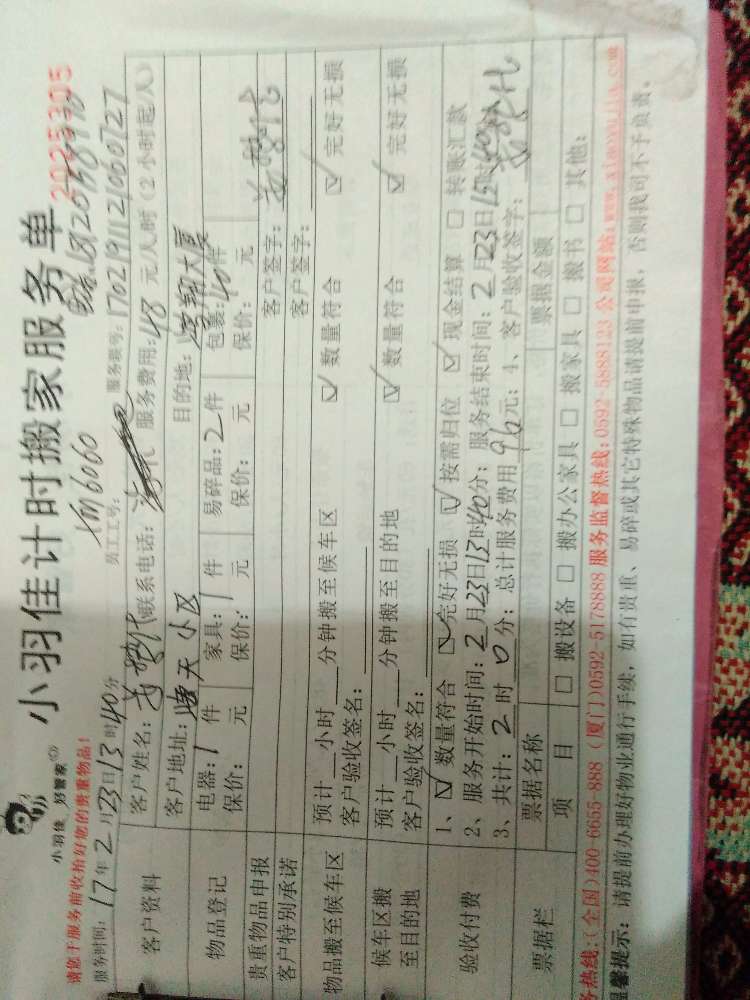 小羽佳 好管家
小羽佳计时搬家服务单
2025305
请您于服务前收拾好您的贵重物品！
员工工号：XM6060
服务时间：17年2月23日13时40分
服务验号：170219112106072
客户资料
客户姓名：
联系电话：
服务费用：48元/人时（2小时起/人）
客户地址：
天小区
目的地：
翔大厦
物品登记
电器：1件 家具：1件 易碎品：2件 包装：10件
保价： 元 保价： 元 保价： 元 保价： 元
贵重物品申报
客户签字：
客户特别承诺
客户签字：
物品搬至候车区
预计 小时 分钟搬至候车区 ☑ 数量符合 ☑ 完好无损
客户验收签名：
候车区搬至目的地
预计 小时 分钟搬至目的地 ☑ 数量符合 ☑ 完好无损
客户验收签名：
验收付费
1、☑ 数量符合 ☑ 完好无损 ☑ 按需归位 ☑ 现金结算 ☐ 转账汇款
2、服务开始时间：2月23日13时40分；服务结束时间：2月23日15时40分
3、共计：2时0分；总计服务费用96元；4、客户验收签字：
票据栏
票据名称 票据金额
项 目 ☐ 搬设备 ☐ 搬办公家具 ☐ 搬家具 ☐ 搬书 ☐ 其他：
务热线：(全国)400-6655-888 (厦门)0592-5178888 服务监督热线：0592-5888123 公司网站：www.xiaoyujia.com
温馨提示：请提前办理好物业通行手续，如有贵重、易碎或其它特殊物品请提前申报，否则我司不予负责。